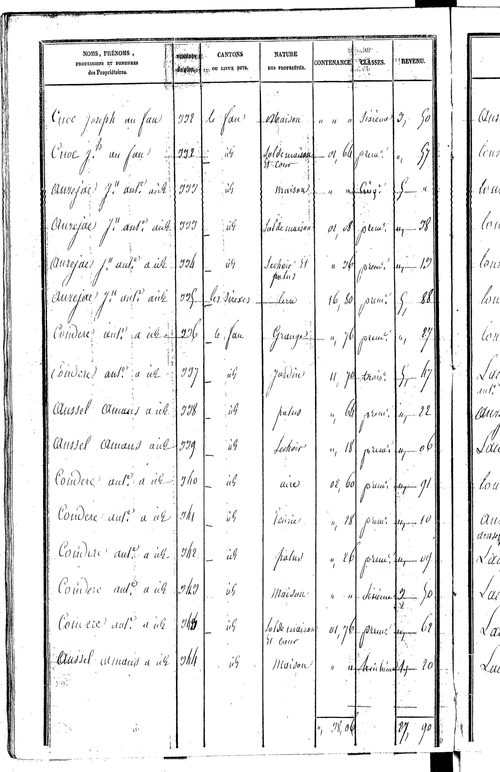 NOMS, PRÉNOMS,
PROFESSIONS ET DEMEURES
des Propriétaires.
CANTONS
OU LIEUX DITS.
NATURE
DES PROPRIÉTÉS.
CONTENANCE.
CLASSES.
REVENU.
Cure joseph au fau 332 le fau Maison " " " Sixième 3, 50
Cure J.ph au fau 332 id Sol de maison et cour 01, 66 prem.e ", 57
Aurejac J.n ant.e a id 333 id maison " " Cinq.e 5 "
Aurejac J.n ant.e a id 333 id Sol de maison 01, 08 prem.e ", 38
Aurejac J.n ant.e a id 334 id Sechoir et patus " 36 prem.e ", 13
Aurejac J.n ant.e a id 335 les terre 16, 80 prem.e 5, 88
Couderc ant.e a id 336 le fau Grange ", 76 prem.e ", 27
Couderc ant.e a id 337 id Jardin 11, 70 trois.e 5, 47
Aussel Amans a id 338 id patus ", 64 prem.e ", 22
Aussel Amans a id 339 id Sechoir ", 18 prem.e ", 06
Couderc ant.e a id 340 id aire 02, 60 prem.e ", 91
Couderc ant.e a id 341 id Ecurie ", 28 prem.e ", 10
Couderc ant.e a id 342 id Patus ", 26 prem.e ", 09
Couderc ant.e a id 343 id Maison " " Sixième 3 50
Couderc ant.e a id 343 id Sol de maison et cour 01, 76 prem.e ", 62
Aussel amans a id 344 id Maison " " huitième 1, 20
", 38, 06 27, 90